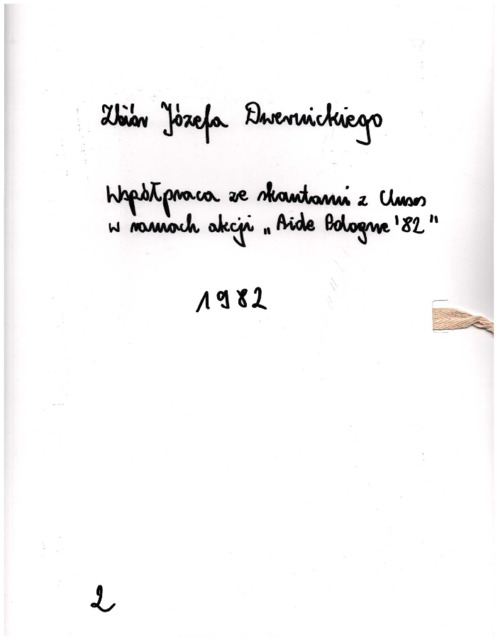 Zbiór Józefa Dwernickiego
Współpraca ze skautami z Cluses
w ramach akcji „Aide Pologne '82"
1982
2